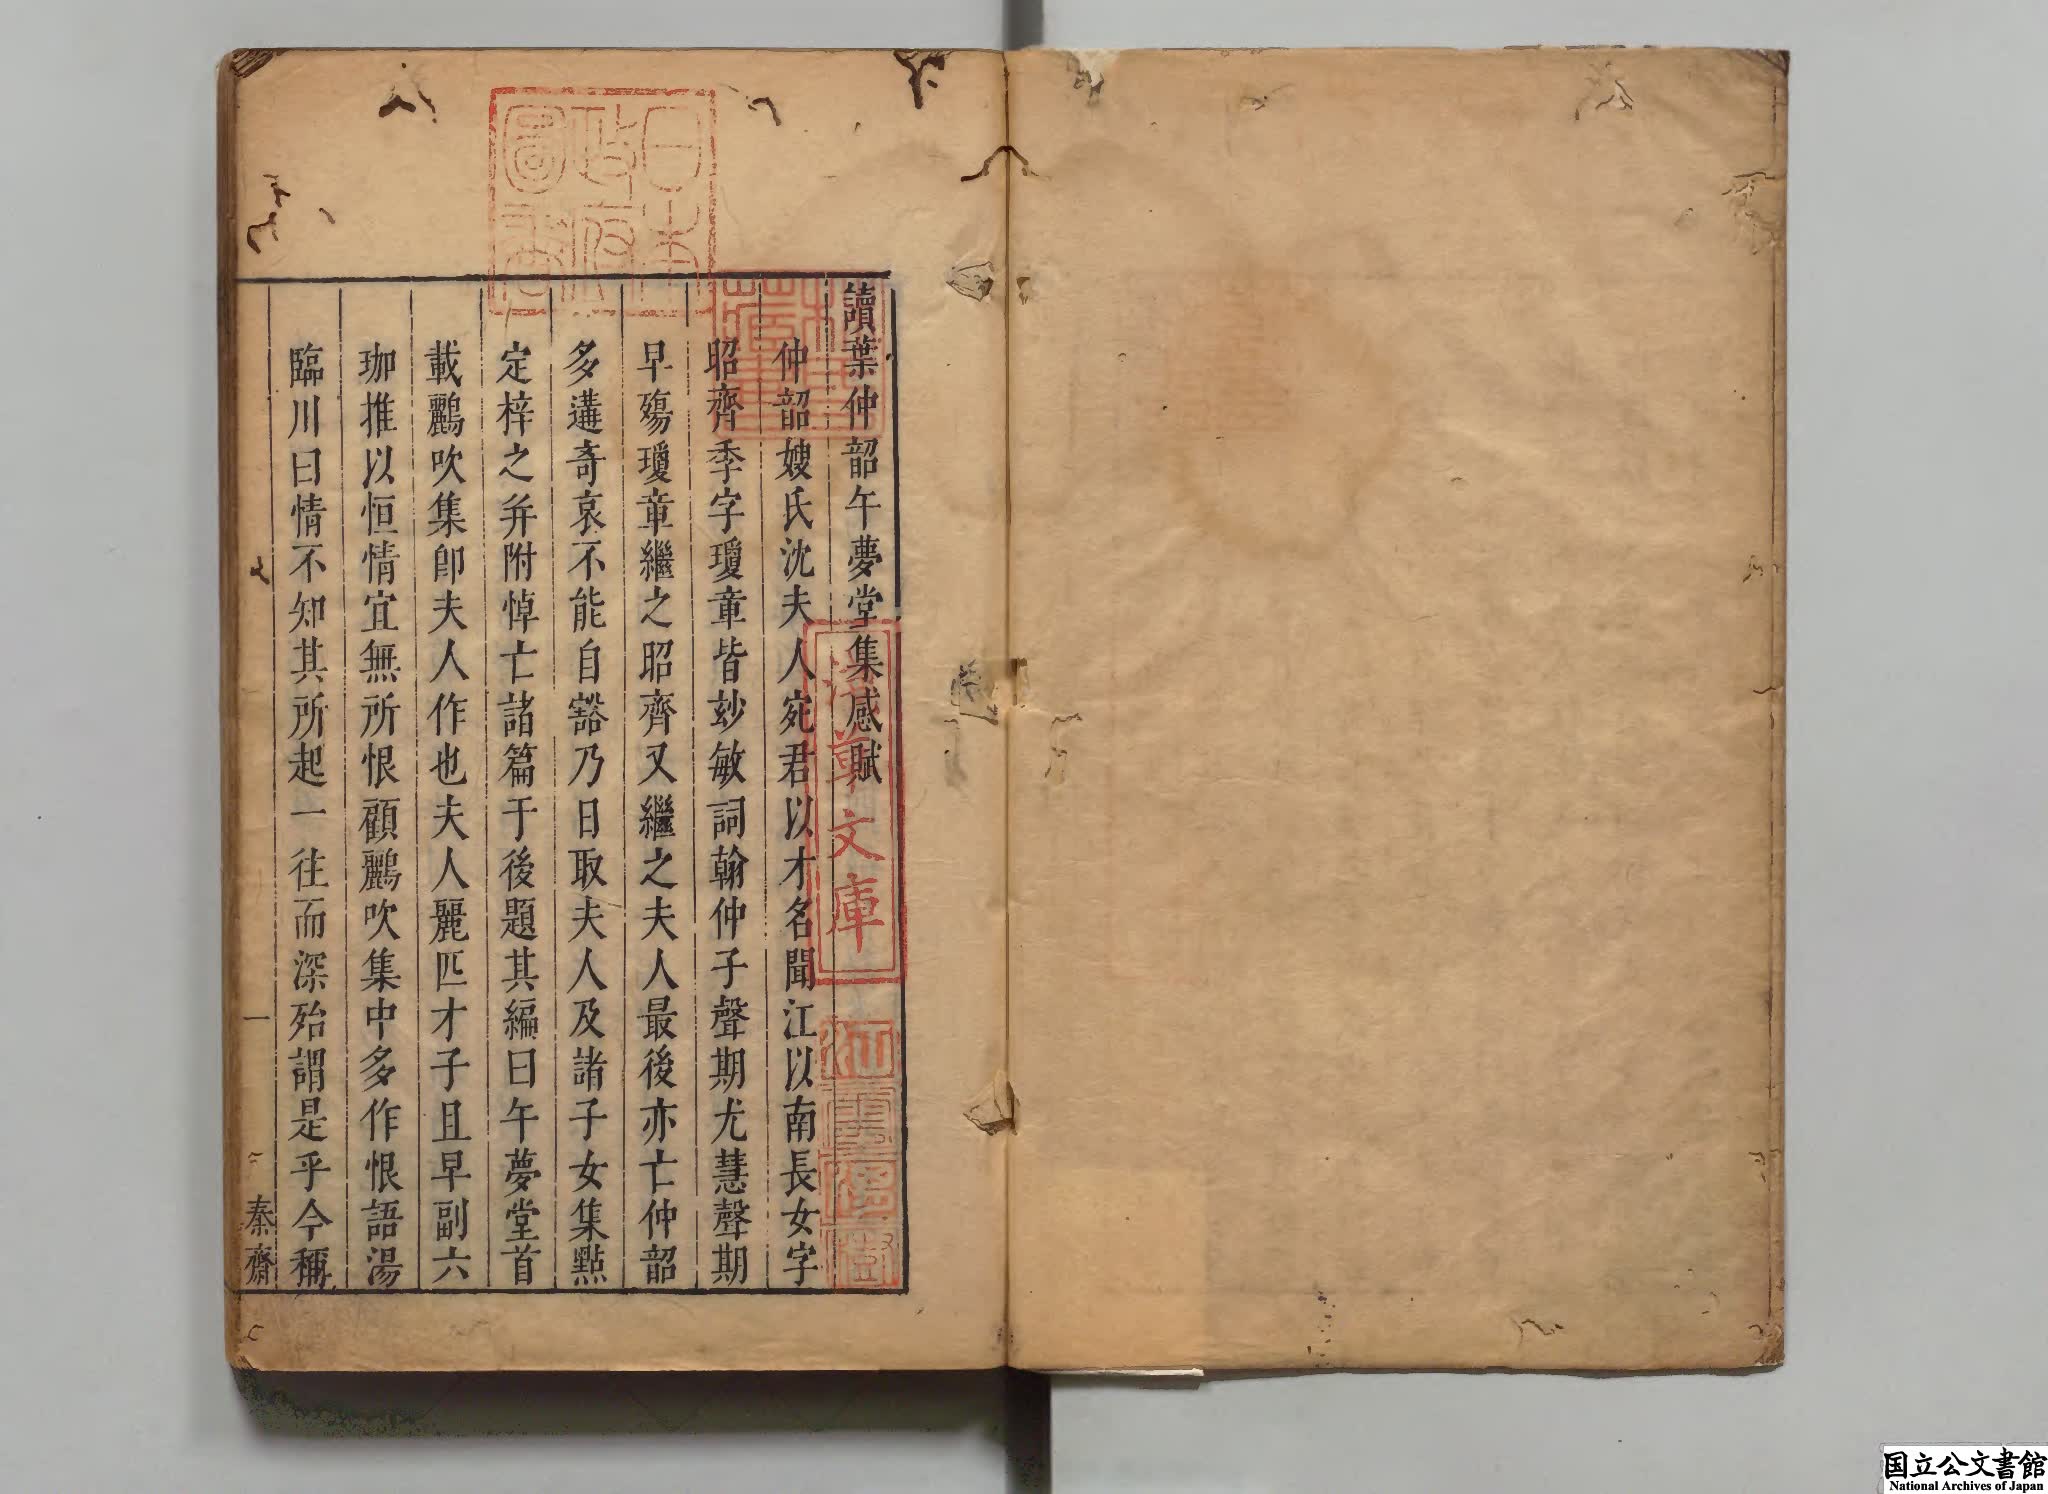 讀葉仲韶午夢堂集感賦
仲韶嫂氏沈夫人宛君以才名聞江以南長女字
昭齊季字瓊章皆玅敏詞翰仲子聲期尤慧聲期
早殤瓊章繼之昭齊又繼之夫人最後亦亡仲韶
多遘奇哀不能自豁乃日取夫人及諸子女集㸃
定梓之并附悼亡諸篇于後題其編曰午夢堂首
載鸝吹集卽夫人作也夫人麗匹才子且早副六
珈推以恒情宜無所恨顧鸝吹集中多作恨語湯
臨川曰情不知其所起一往而深殆謂是乎今稱
一
秦齋
日本
政府
圖書
林氏
藏書
淺草文庫
江雲渭樹
国立公文書館
National Archives of Japan